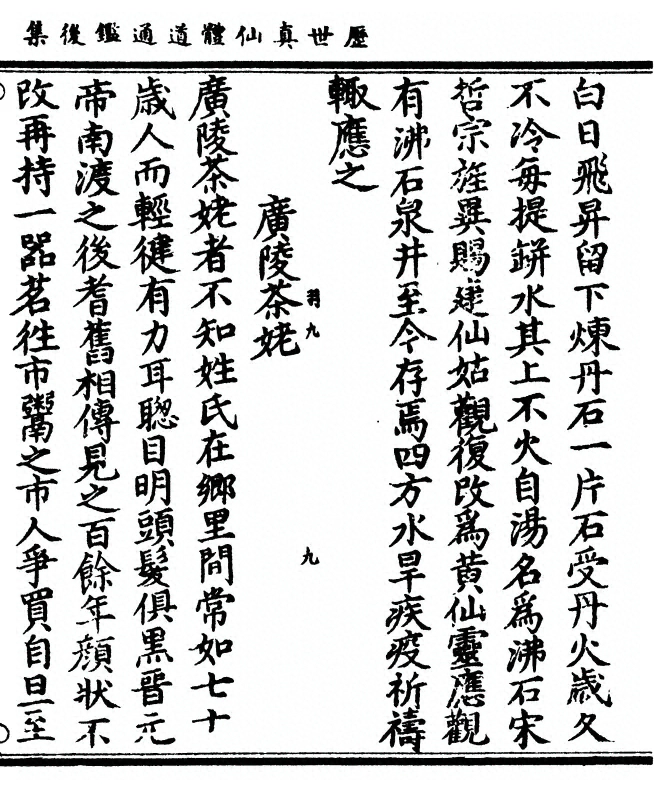 歷世真仙體道通鑑後集
白日飛昇留下煉丹石一片石受丹火歲久
不冷每提缾水其上不火自湯名為沸石宋
哲宗旌異賜建仙姑觀復改為黄仙靈應觀
有沸石泉井至今存焉四方水旱疾疫祈禱
輙應之
廣陵茶姥
羽九
九
廣陵茶姥者不知姓氏在鄉里間常如七十
歲人而輕健有力耳聦目明頭髮俱黑晉元
帝南渡之後耆舊相傳見之百餘年顔狀不
改再持一器茗徃市鬻之市人爭買自旦至